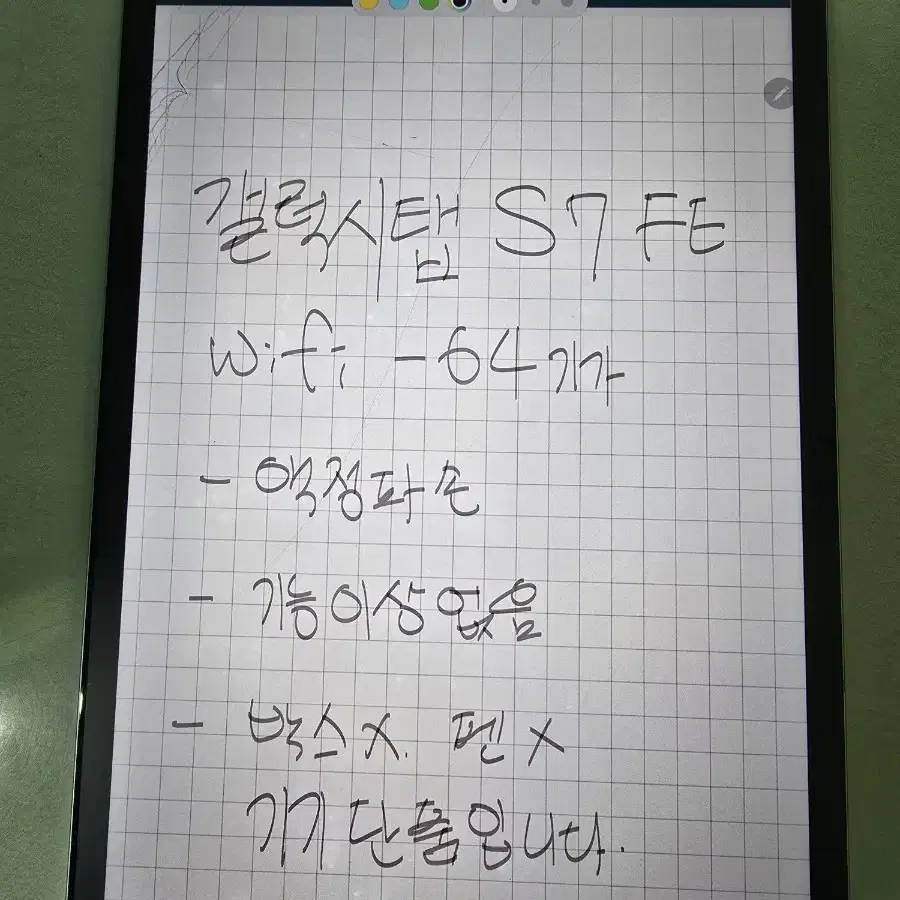 갤럭시탭 S7 FE
wifi - 64기가
- 액정파손
- 기능이상없음
- 박스X. 펜X
기기단품입니다.